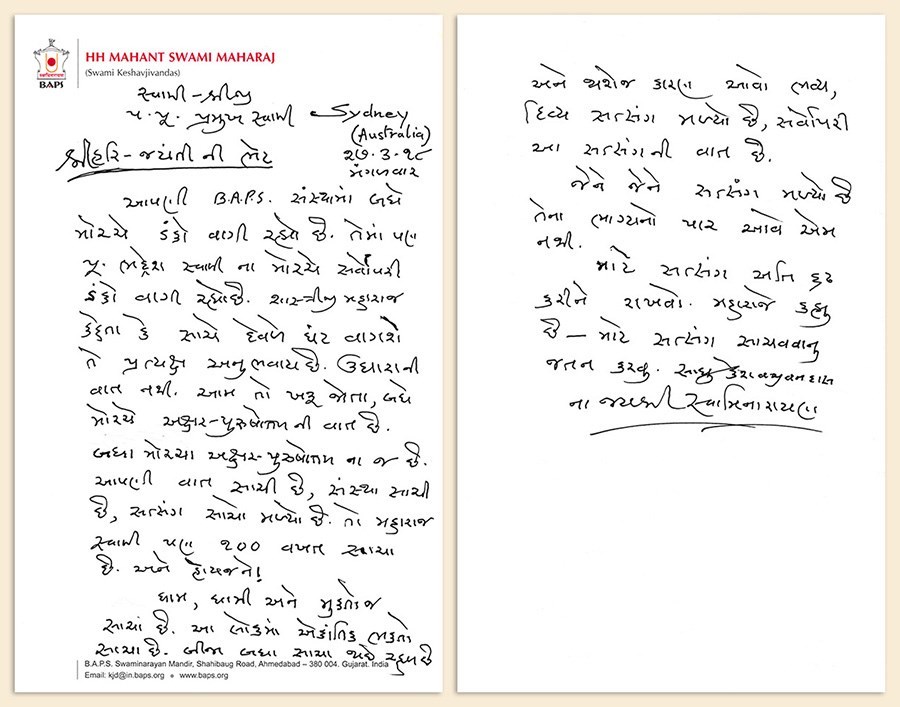 BAPS
HH MAHANT SWAMI MAHARAJ
(Swami Keshavjivandas)
સ્વામી-શ્રીજી
પ.પૂ. પ્રમુખ સ્વામી
Sydney
(Australia)
૨૭.૩.૧૮
મંગળવાર
શ્રીહરિ-જયંતી ની ભેટ
આપણી B.A.P.S. સંસ્થામાં બધે
મોરચે ડંકો વાગી રહ્યો છે. તેમાં પણ
પૂ. ભદ્રેશ સ્વામી ના મોરચે સર્વોપરી
ડંકો વાગી રહ્યો છે. શાસ્ત્રીજી મહારાજ
કહેતા કે સાચે દેવળે ઘંટ વાગશે
તે પ્રત્યક્ષ અનુભવાય છે. ઉધારાની
વાત નથી. આમ તો ખરૂ જોતા, બધે
મોરચે અક્ષર-પુરુષોત્તમ ની વાત છે.
બધા મોરચા અક્ષર-પુરુષોત્તમ ના જ છે.
આપણી વાત સાચી છે, સંસ્થા સાચી
છે, સત્સંગ સાચો મળ્યો છે. તો મહારાજ
સ્વામી પણ ૧૦૦ વખત સાચા
છે. અને હોયજને!
ધામ, ધામી અને મુક્તોજ
સાચાં છે. આ લોકમાં એકાંતિક ભક્તો
સાચા છે. બીજા બધા સાચા થઈ રહ્યા છે
B.A.P.S. Swaminarayan Mandir, Shahibaug Road, Ahmedabad – 380 004. Gujarat. India
Email: kjd@in.baps.org • www.baps.org
અને થશેજ કારણ આવો ભવ્ય,
દિવ્ય સત્સંગ મળ્યો છે, સર્વોપરી
આ સત્સંગ ની વાત છે.
જેને જેને સત્સંગ મળ્યો છે
તેના ભાગ્યનો પાર આવે એમ
નથી.
માટે સત્સંગ અતિ દ્રઢ
કરીને રાખવો. મહારાજે કહ્યુ
છે – માટે સત્સંગ સાચવવાનુ
જતન કરવુ. સાધુ કેશવજીવનદાસ
ના જયશ્રી સ્વામિનારાયણ